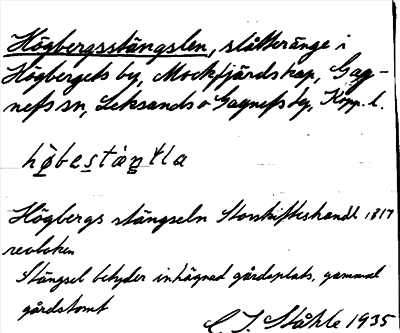 Högbergsstängslen, slåtteränge i
Högbergets by, Mockfjärds kap, Gag-
nefs sn, Leksands o Gagnefs tg, Kopp. l.
Högbergs stängseln Storskifteshandl 1817
revboken
Stängsel betyder inhägnad gårdsplats, gammal
gårdstomt
C. I. Ståhle 1935